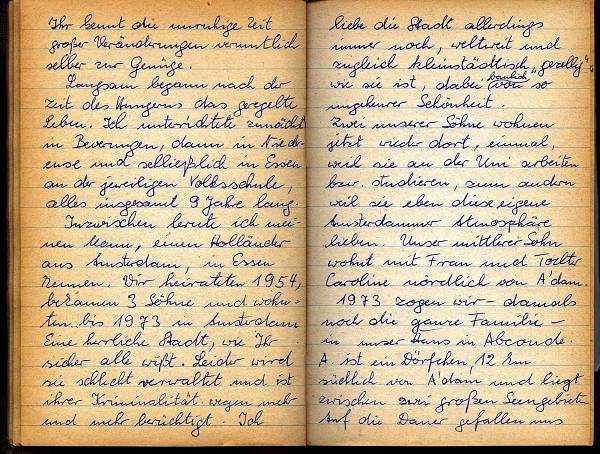 Ihr kennt die unruhige Zeit
großer Veränderungen vermutlich
selber zur Genüge.
Langsam begann nach der
Zeit des Hungerns das geregelte
Leben. Ich unterrichtete zunächst
in Beverungen, dann in Nieder-
ense und schließlich in Essen
an der jeweiligen Volksschule,
alles insgesamt 9 Jahre lang.
Inzwischen lernte ich mei-
nen Mann, einen Holländer
aus Amsterdam, in Essen
kennen. Wir heirateten 1954,
bekamen 3 Söhne und wohn-
ten bis 1973 in Amsterdam
Eine herrliche Stadt, wie Ihr
sicher alle wißt. Leider wird
sie schlecht verwaltet und ist
ihrer Kriminalität wegen mehr
und mehr berüchtigt. Ich
liebe die Stadt allerdings
immer noch, weltweit und
zugleich kleinstädtisch „gezellig“
wie sie ist, dabei baulich von so
ungeheurer Schönheit.
Zwei unserer Söhne wohnen
jetzt wieder dort, einmal,
weil sie an der Uni arbeiten
bzw. studieren, zum andern
weil sie eben diese eigene
Amsterdammer Atmosphäre
lieben. Unser mittlerer Sohn
wohnt mit Frau und Tochter
Caroline nördlich von A'dam.
1973 zogen wir - damals
noch die ganze Familie -
in unser Haus in Abcoude.
A. ist ein Dörfchen, 12 km
südlich von A'dam und liegt
zwischen zwei großen Seengebieten
Auf die Dauer gefallen uns